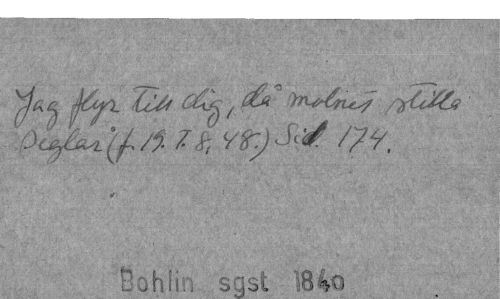 Jag flyr till dig, då molnet stilla
seglar (f. 19. T. 8, 48.) Sid. 174.
Bohlin sgst 1840